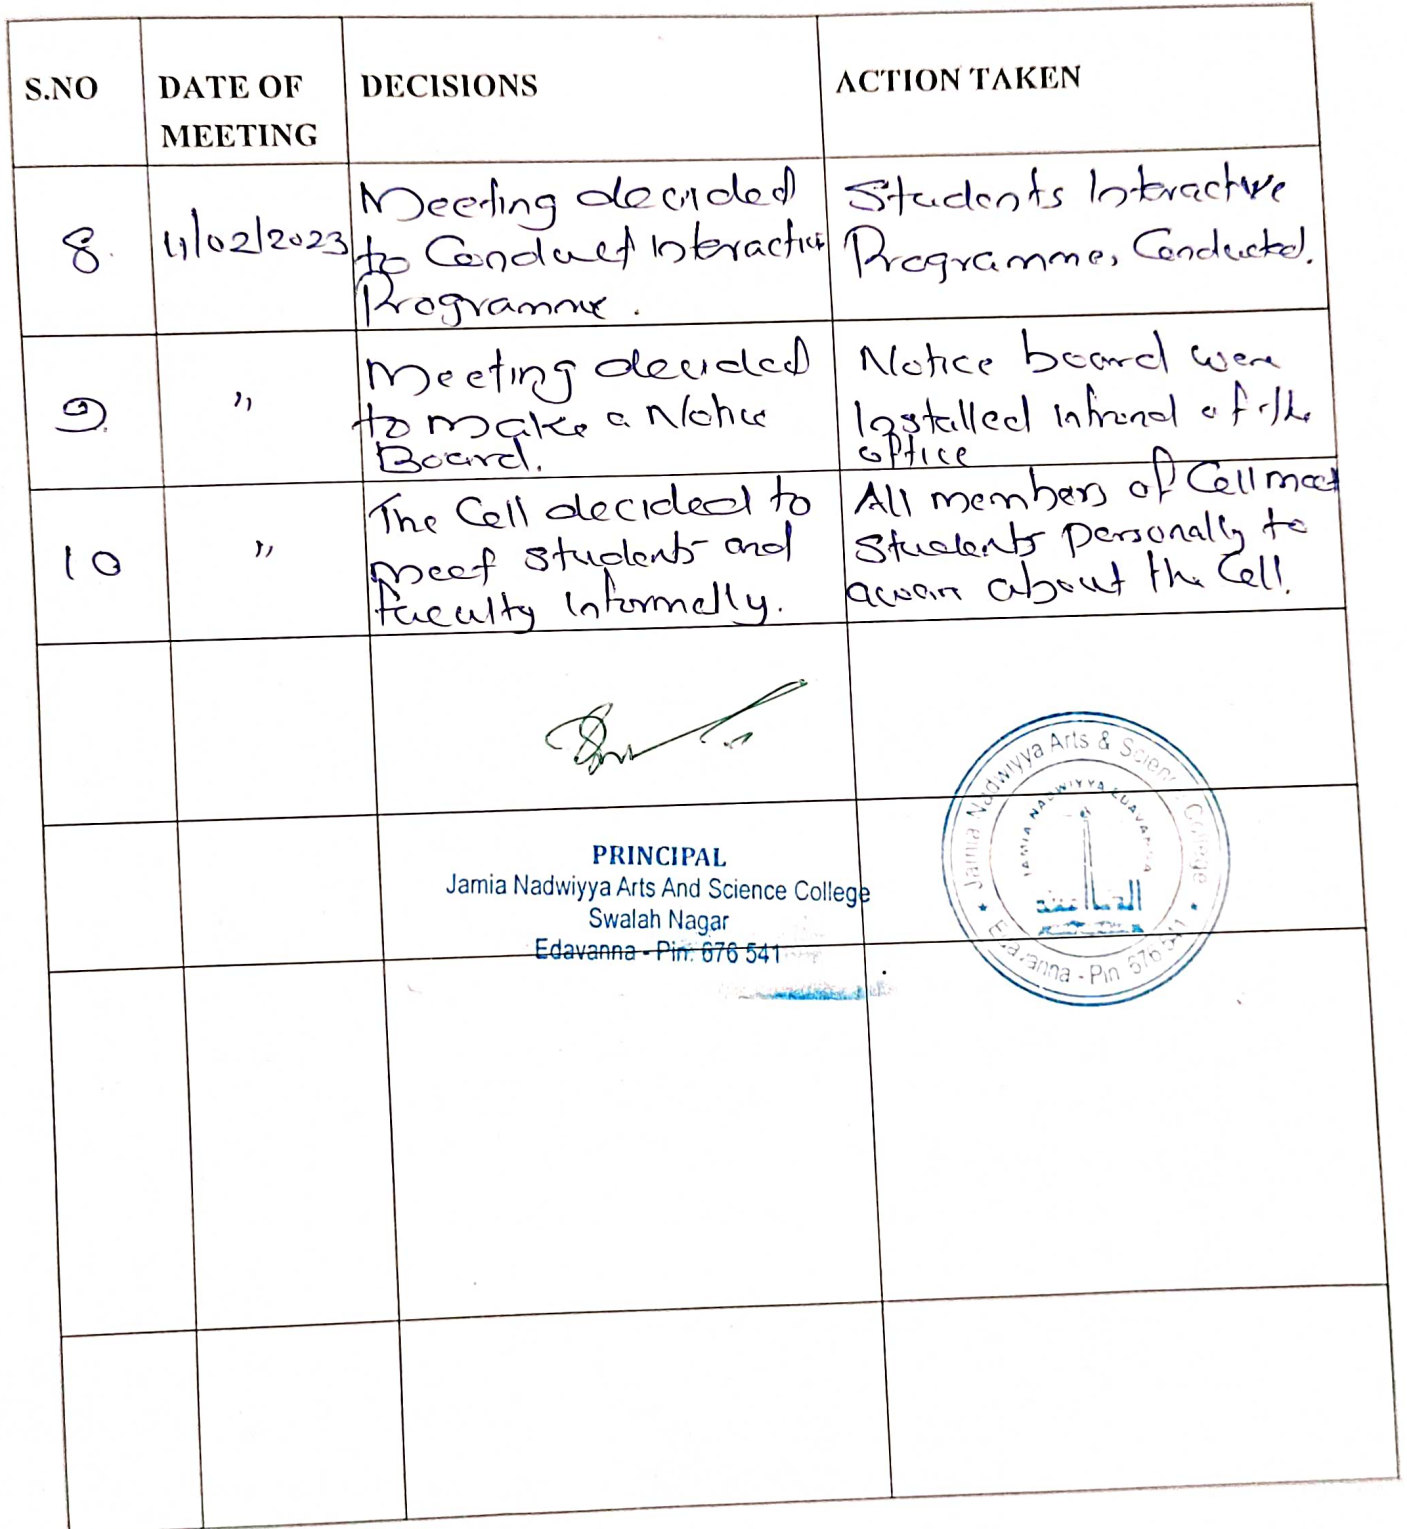 S.NO
DATE OF
MEETING
DECISIONS
ACTION TAKEN
8.
11/02/2023
Meeting decided
to Conduct Interactive
Programme.
Students Interactive
Programme, Conducted.
9.
"
Meeting decided
to make a Notice
Board.
Notice board were
Installed infrond of the
office
10
"
The Cell decided to
meet students and
faculty Informally.
All members of Cell meet
Students personally to
about the Cell.
PRINCIPAL
Jamia Nadwiyya Arts And Science College
Swalah Nagar
Edavanna - Pin: 676 541
Jamia Nadwiyya Arts & Science College
JAMIA NADWIYYA EDAVANNA
Edavanna - Pin 676 541